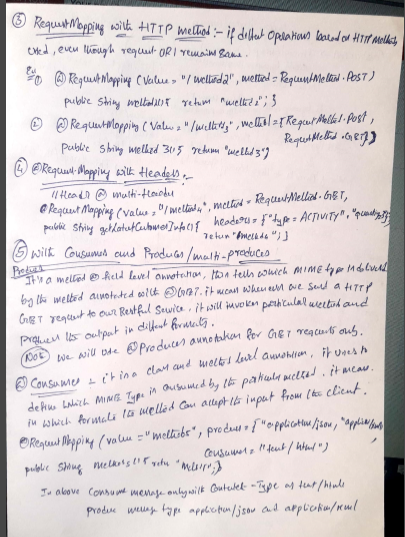 ③ RequestMapping with HTTP method :- if diffent operations based on HTTP methods
used, even though request URI remains same.
Ex ① @RequestMapping (value = "/method2", method = RequestMethod.POST)
public String method2() { return "method2"; }
2. @RequestMapping (value = "/method3", method = { RequestMethod.POST,
RequestMethod.GET })
public String method3() { return "method3"; }
④ @Request-Mapping with Headers :-
// Header @ multi-Header
@RequestMapping (value = "/method4", method = RequestMethod.GET,
headers = { "type = ACTIVITY",
public String getLatestCustomerInfo() {
return "method4"; }
⑤ with Consumes and Produces / multi-produces
Produces
It is a method field level annotation, this tells which MIME type is delivered
by the method annotated with @GET. it mean whenever we send a HTTP
GET request to our Restful Service, it will invoke particular method and
produces the output in diffent formats.
Note we will use @Produces annotation for GET requests only.
② Consumes - it is a class and method level annotation, it uses to
define which MIME Type is consumed by the particular method. it mean
in which formats the method can accept the input from the client.
@RequestMapping (value = "method5", produces = { "application/json", "application/
consumes = "text/html")
public String method5() { return "method5"; }
In above consume message only with Content-Type as text/html
produce message type application/json and application/xml